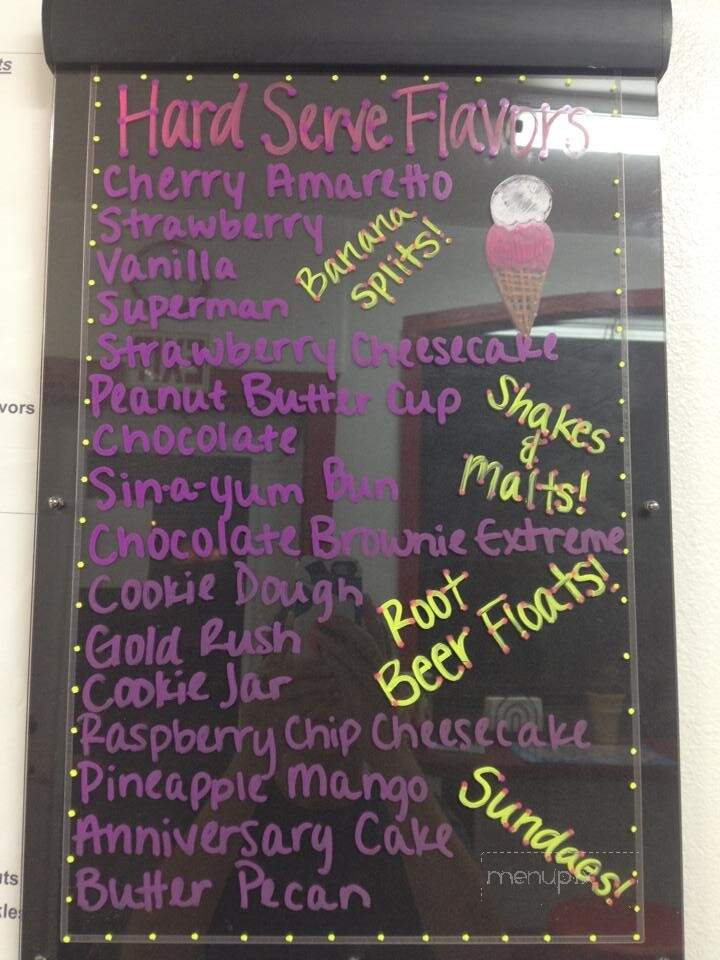 Hard Serve Flavors
Cherry Amaretto
Strawberry
Vanilla
Superman
Strawberry Cheesecake
Peanut Butter Cup
Chocolate
Sin-a-yum Bun
Chocolate Brownie Extreme
Cookie Dough
Gold Rush
Cookie Jar
Raspberry Chip Cheesecake
Pineapple Mango
Anniversary Cake
Butter Pecan
Banana
Splits!
Shakes
&
Malts!
Root
Beer Floats!
Sundaes!